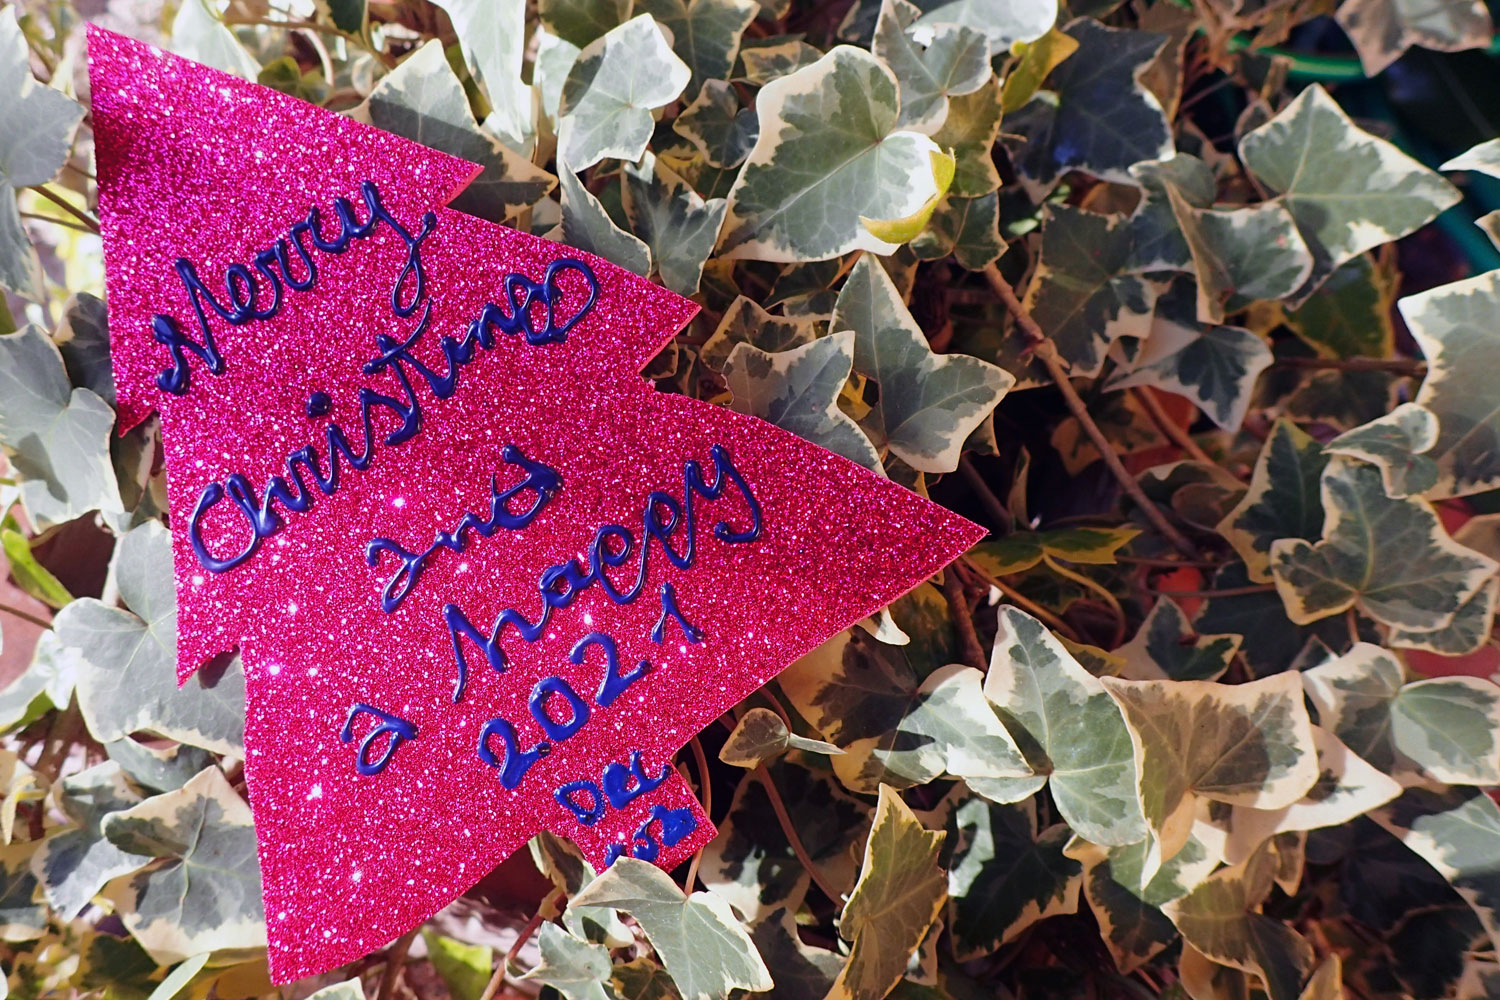 Merry
Christmas
and
a happy
2021